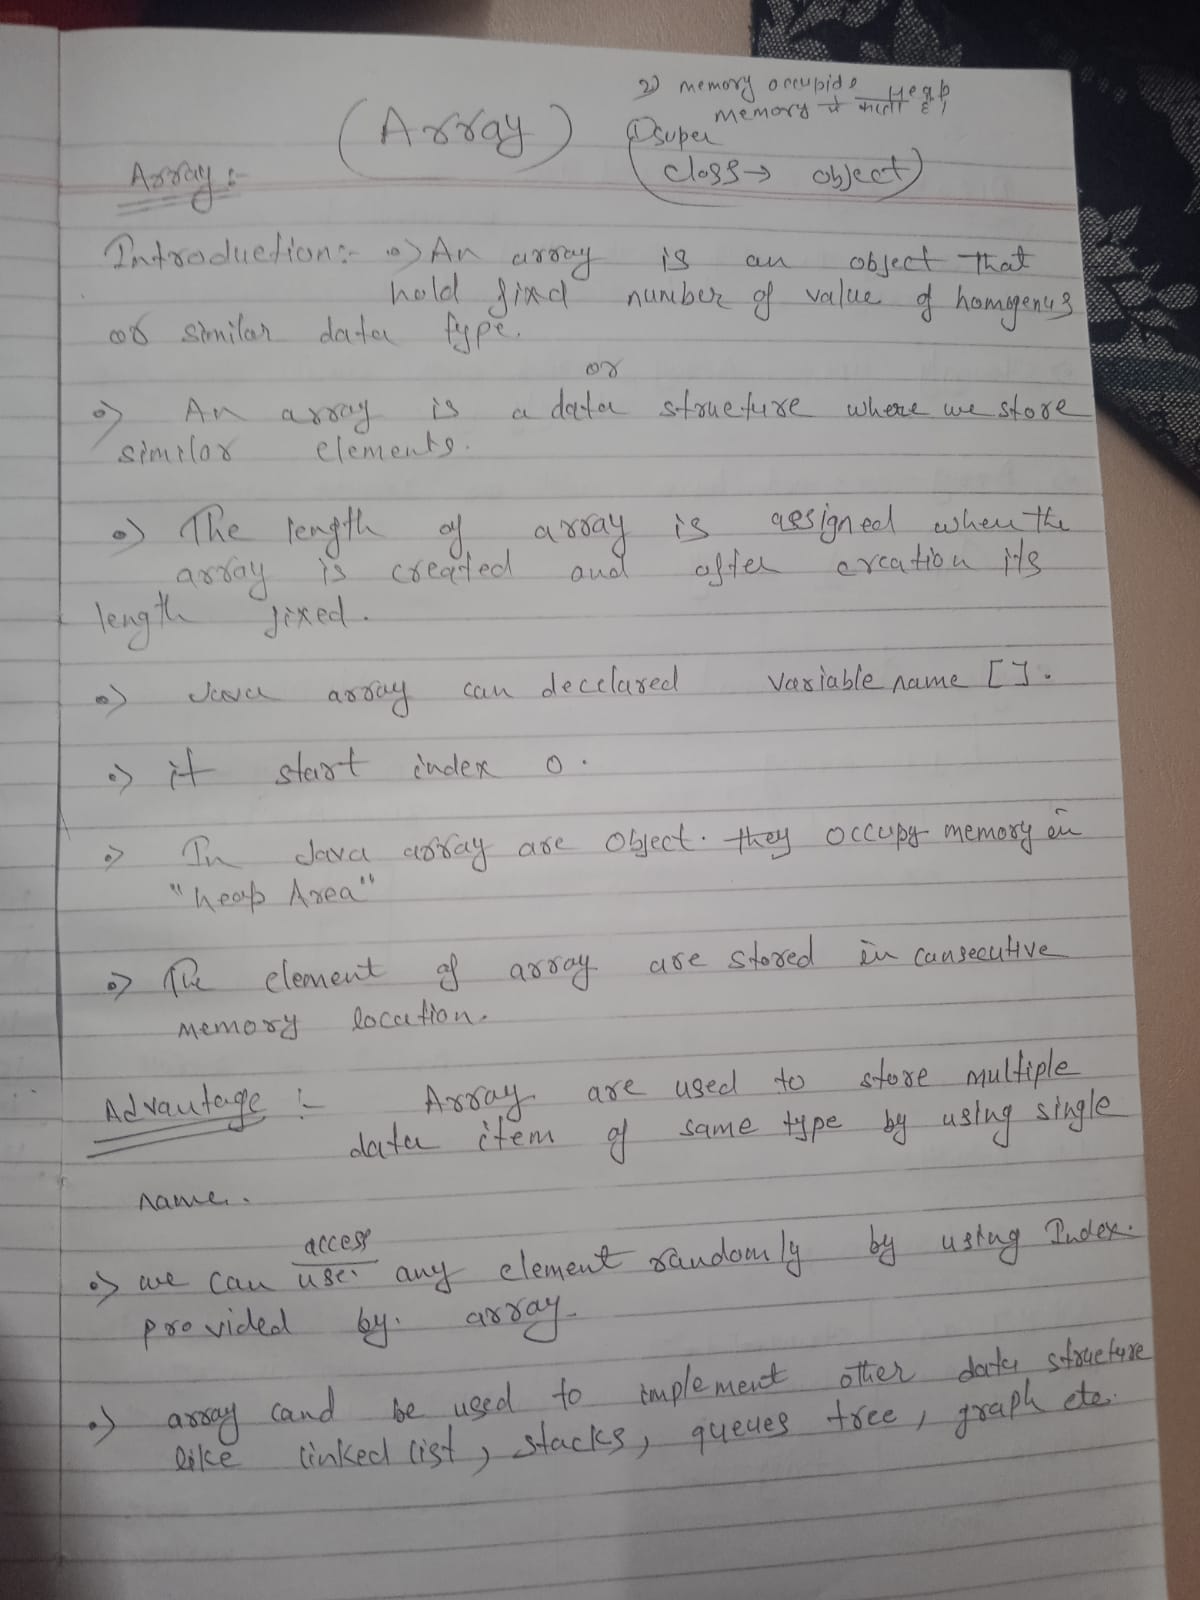 2) memory occupide Heap
memory में करता है,
(Array)
① super
class → object
Array :-
Introduction:- •> An array is an object that
hold fixd number of value of homogenus
or similar data type.
or
•> An array is a data structure where we store
similar elements.
•> The length of array is assigned when the
array is created and after creation its
length fixed.
•> Java array can decclared variable name [].
•> it start index 0.
•> In Java array are Object. they occupy memory in
"heap Area"
•> The element of array are stored in cansecutive
memory location.
Advantage :- Array are used to store multiple
data item of same type by using single
name.
access
•> we can use. any element randomly by using Index.
provided by. array.
•> array cand be used to implement other data structure
like linked list, stacks, queues tree, graph etc.